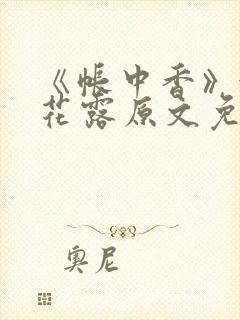 《帐中香》
花露原文免
奥尼